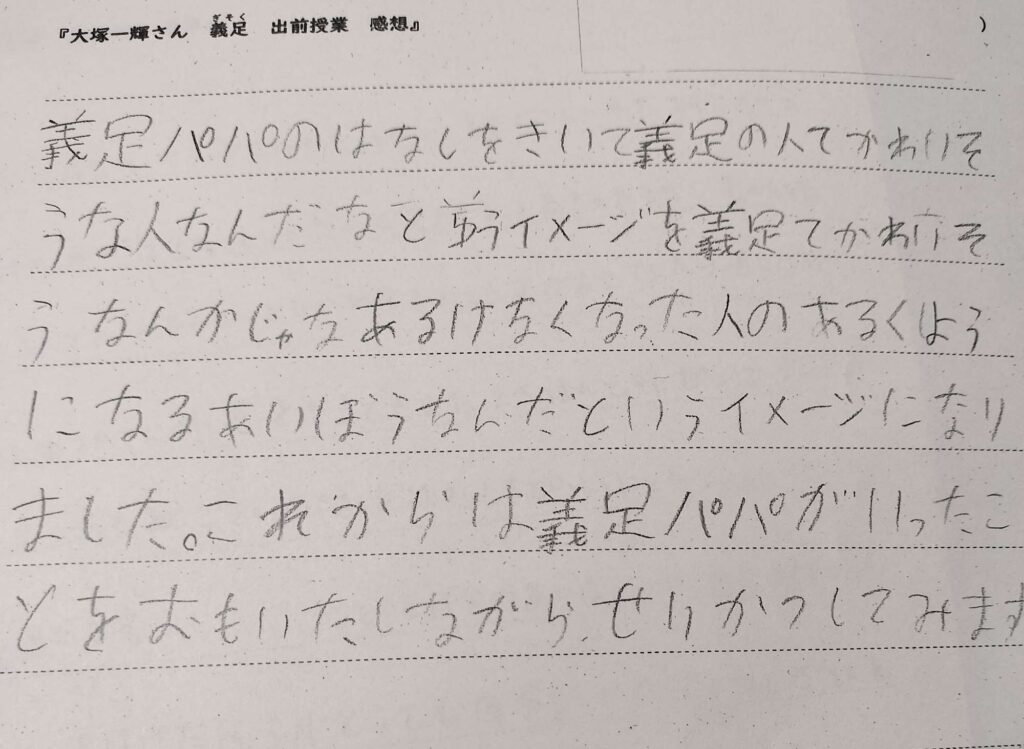 『大塚一輝さん 義足 出前授業 感想』 )
ぎそく
義足パパのはなしをきいて義足の人てかわいそ
うな人なんだなと言うイメージを義足てかわいそ
うなんかじゃなあるけなくなった人のあるくよう
になるあいぼうなんだというイメージになり
ました。これからは義足パパがいったこ
とをおもいたしながら、せいかつしてみます